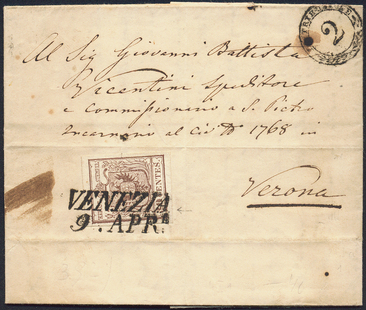 2
Al Sig Giovanni Battista
Vicentini Speditore
e Commissionario a S. Pietro
Incarnario al Civ No 1768 in
Verona
CENTES.
VENEZIA
9. APRE